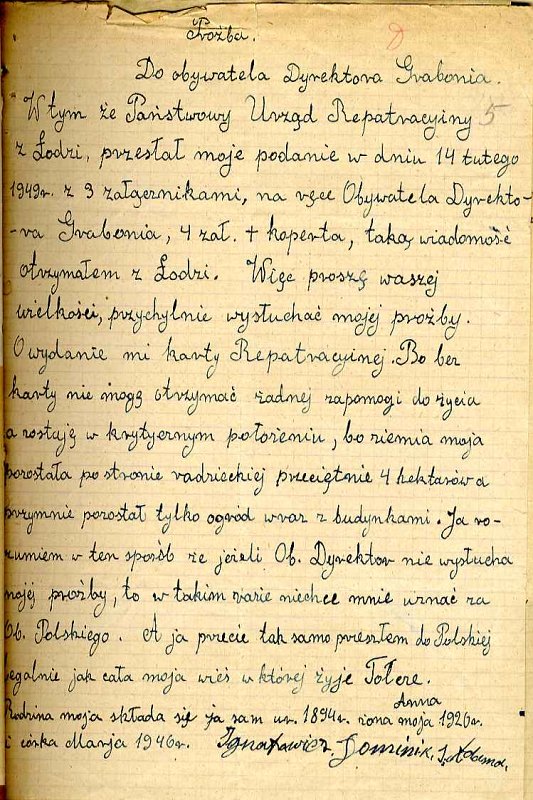 Proźba.
Do obywatela Dyrektora Grabonia.
W tym że Państwowy Urząd Repatracyiny 5
z Łodzi, przesłał moje podanie w dniu 14 tutego
1949r. z 3 załącznikami, na ręce Obywatela Dyrekto-
-ra Grabonia, 4 zał. + koperta, taką wiadomość
otrzymałem z Łodzi. Więc proszę waszej
wielkości, przychylnie wysłuchać mojej proźby.
O wydanie mi karty Repatracyinej. Bo bez
karty nie mogę otrzymać żadnej zapomogi do życia
a zostaję w krytycznym położeniu, bo ziemia moja
pozostała po stronie radzieckiej przeciętnie 4 hektarów a
przymnie pozostał tylko ogród wraz z budynkami. Ja ro-
zumiem w ten sposób że jeżeli Ob. Dyrektor nie wysłucha
mojej proźby, to w takim razie niechce mnie uznać za
Ob. Polskiego. A ja przecie tak samo przeszłem do Polskiej
legalnie jak cała moja wieś w której żyje Tołcze.
Anna
Rodzina moja składa się ja sam ur. 1894r. żona moja 1926r.
i córka Marja 1946r. Ignatowicz Dominik, s. Adama.